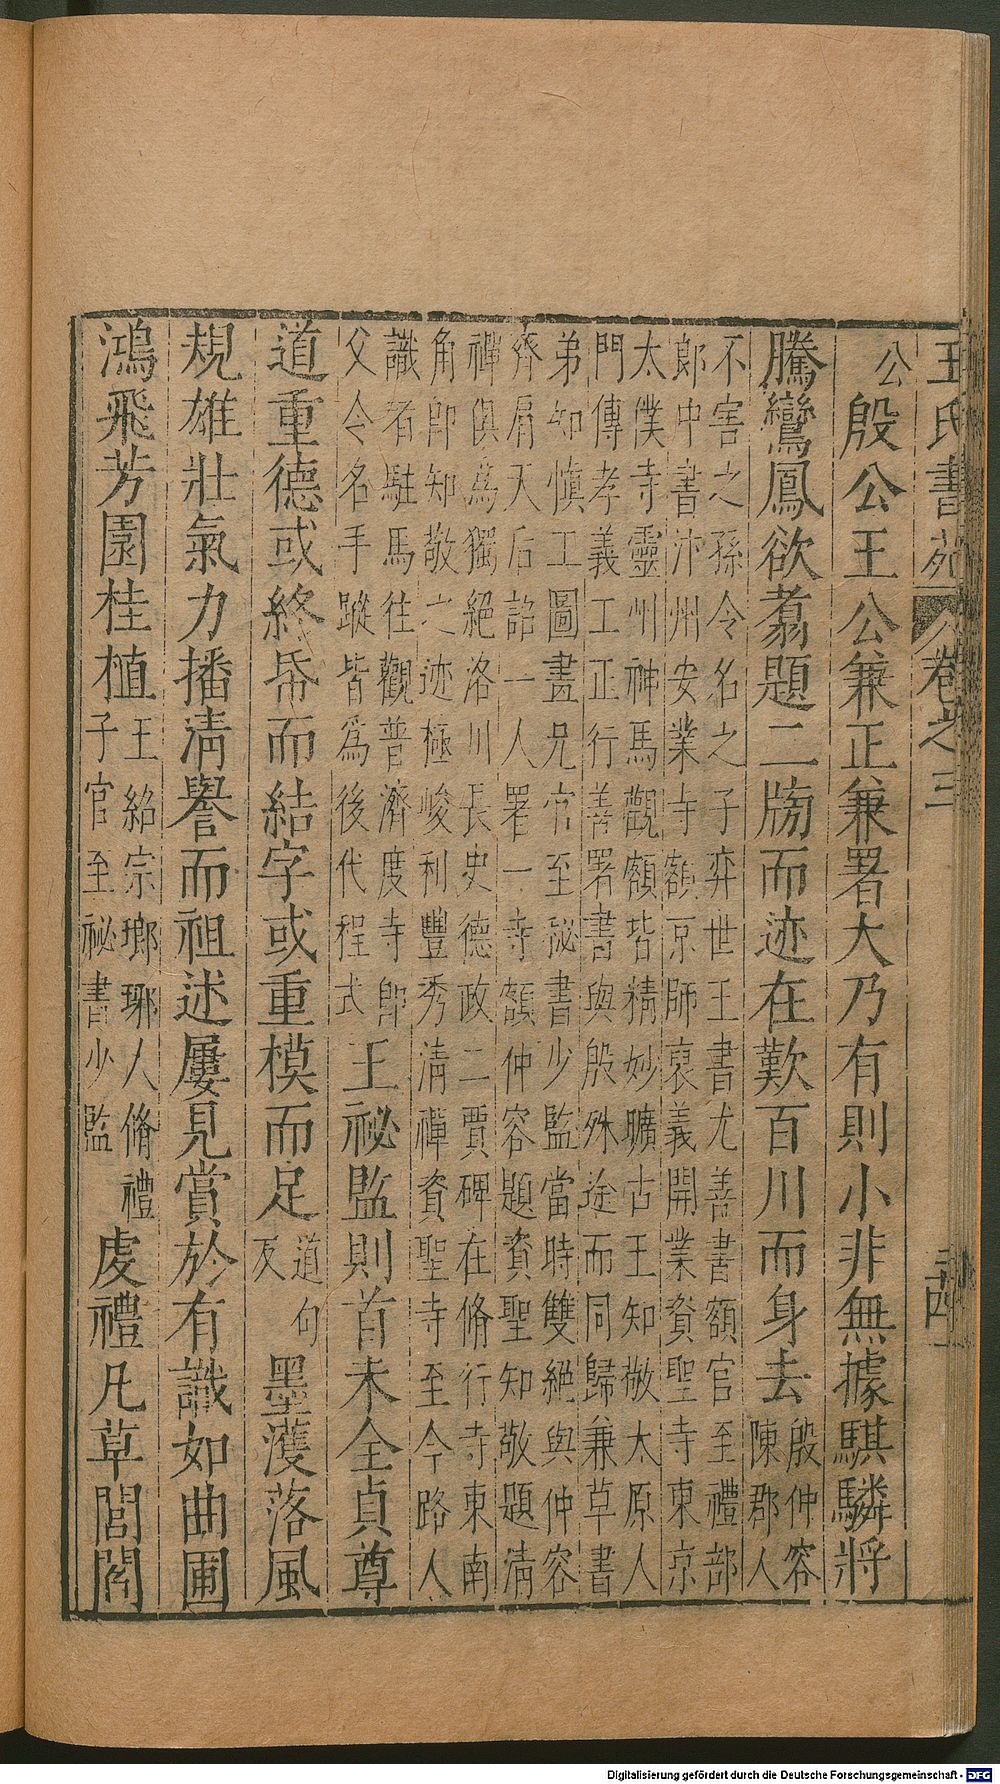 王氏書苑 卷之三
公
殷公王公兼正兼署大乃有則小非無據騏驎將
騰鸞鳳欲翥題二牓而迹在歎百川而身去
殷仲容
陳郡人
不害之孫令名之子弈世王書尤善書額官至禮部
郎中書汴州安業寺額京師裒義開業資聖寺東京
太僕寺靈州神馬觀額皆精妙曠古王知敬太原人
門傳孝義工正行善署書與殷殊途而同歸兼草書
弟知慎工圖畫兄官至祕書少監當時雙絕與仲容
齊肩天后詔一人署一寺額仲容題資聖知敬題清
禪俱為獨絕洛川長史德政二賈碑在脩行寺東南
角即知敬之迹極峻利豐秀清禪資聖寺至今路人
識者駐馬往觀普濟度寺即
父令名手蹤皆為後代程式
王祕監則首末全貞尊
道重德或終帋而結字或重模而足
道句
反
墨濩落風
規雄壯氣力播清譽而祖述屢見賞於有識如曲圃
鴻飛芳園桂植
王紹宗瑯琊人脩禮
子官至祕書少監
處禮凡草閭閻
Digitalisierung gefördert durch die Deutsche Forschungsgemeinschaft - DFG